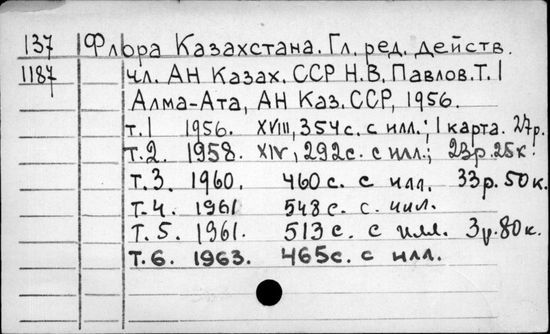 137 Флора Казахстана. Гл. ред. действ.
1187 чл. АН Казах. ССР Н.В. Павлов. Т. 1
Алма-Ата, АН Каз. ССР, 1956.
т. 1 1956. XVIII, 354 с. с илл.; 1 карта. 27р.
т. 2. 1958. XIV, 292с. с илл.; 23р. 25к.
т. 3. 1960. 460 с. с илл. 33р. 50к.
т. 4. 1961 548 с. с. илл.
т. 5. 1961. 513 с. с илл. 3р. 80к.
т. 6. 1963. 465с. с илл.